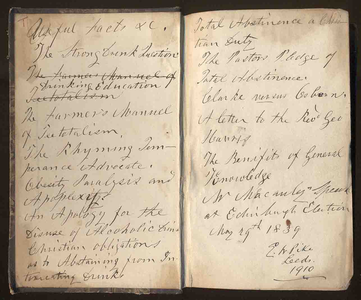 Useful Facts &c.
The Strong Drink Question
The Farmers Manuel of
Drinking Education
Teetotalism
The Farmer's Manuel
of Teetotalism.
The Rhyming Tem-
perance Advocate.
Obesity Paralysis and
Apoplexy
An Apology for the
Disuse of Alcoholic Drinks
Christian obligations
as to Abstaining from In-
toxicating Drinks
Total Abstinence a Chris-
tian Duty
The Pastors Pledge of
Total Abstinence.
Clarke versus Osborn.
A letter to the Revd Geo
Harris
The Benifits of General
Knowledge
Mr Macauley Speech
at Edinburgh Election
May 29th 1839
Pike
Leeds.
1910